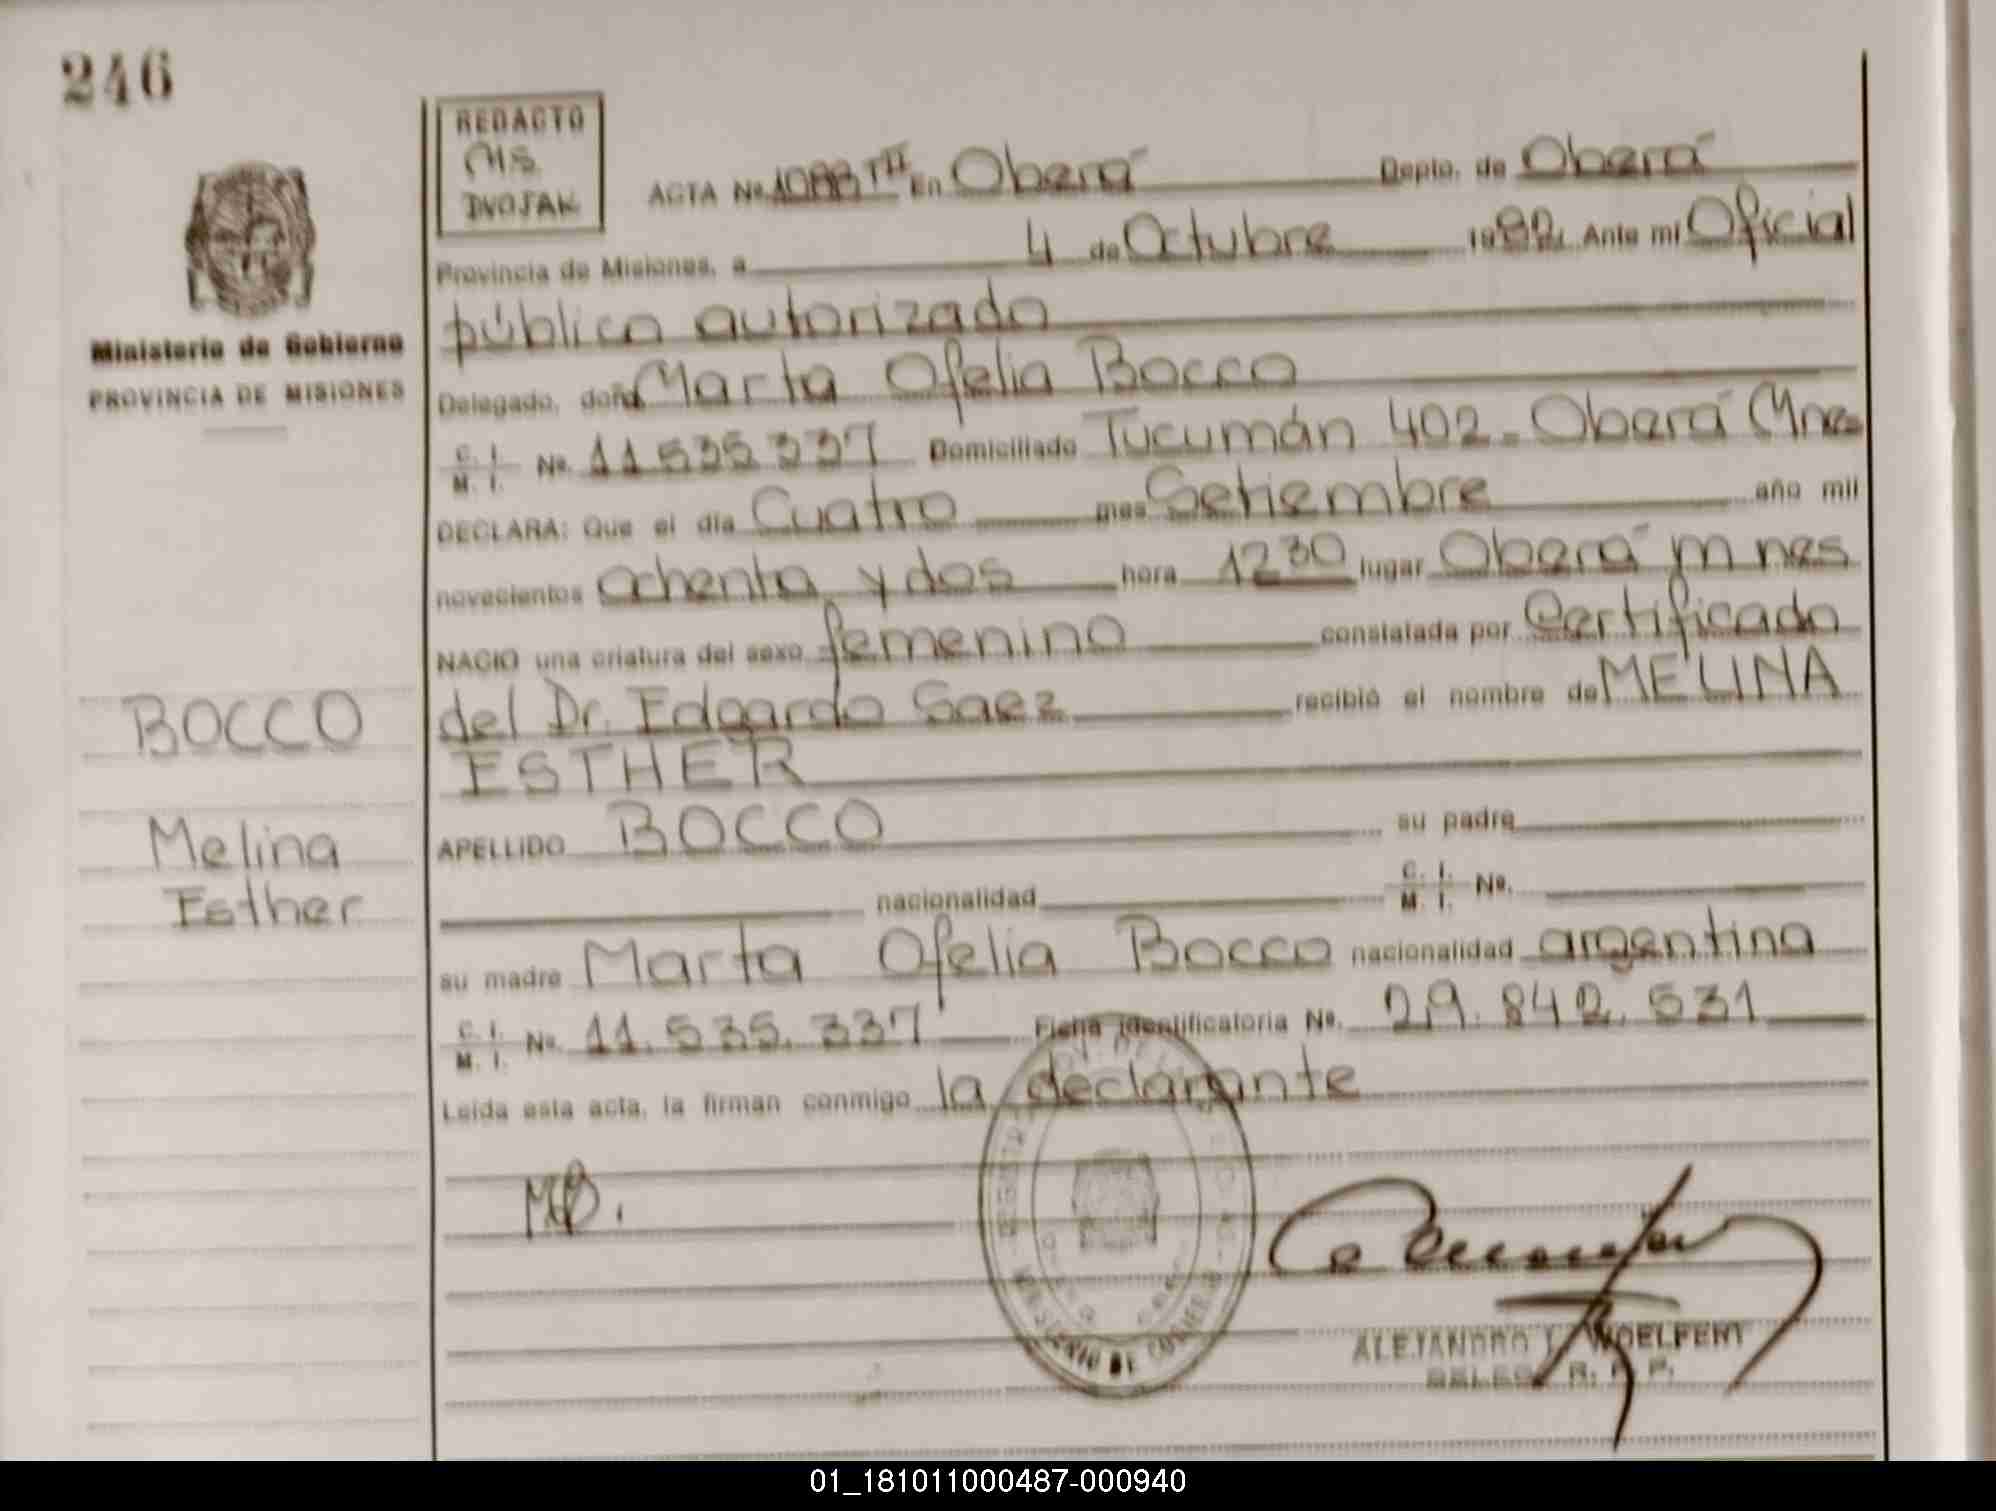 246
REDACTO
MS
DVOJAK
ACTA Nº 1088 TIII En Oberá Depto. de Oberá
Provincia de Misiones, a 4 de Octubre 1982. Ante mi Oficial
público autorizado
Ministerio de Gobierno
PROVINCIA DE MISIONES
Delegado, doña Marta Ofelia Bocco
C. I. M. I. Nº. 11.535.337 Domiciliado Tucumán 402 - Oberá Mnes
DECLARA: Que el día Cuatro mes Setiembre año mil
novecientos ochenta y dos hora 12 30 lugar Oberá Mnes
NACIO una criatura del sexo femenino constatada por Certificado
del Dr. Edgardo Saez recibió el nombre de MELINA
ESTHER
BOCCO
Melina
Esther
APELLIDO BOCCO su padre
nacionalidad C. I. M. I. Nº.
su madre Marta Ofelia Bocco nacionalidad argentina
C. I. M. I. Nº. 11.535.337 Ficha identificatoria Nº. 29.842.531
Leída esta acta, la firman conmigo la declarante
MINISTERIO DE GOBIERNO
ALEJANDRO WOELFERT
DELEG. R. P. P.
01_181011000487-000940